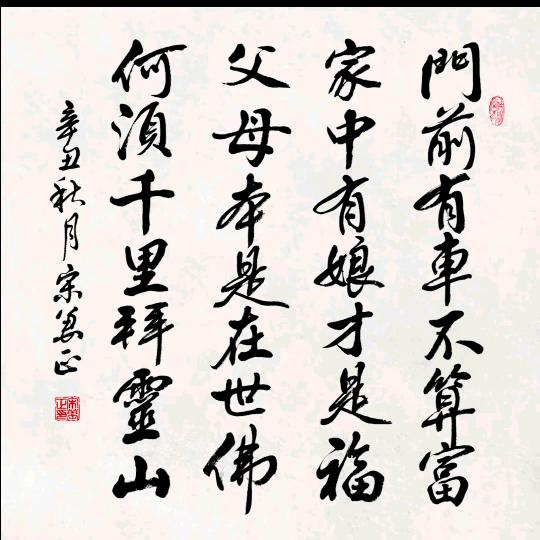 門前有車不算富
家中有娘才是福
父母本是在世佛
何須千里拜靈山
辛丑秋月宋為正